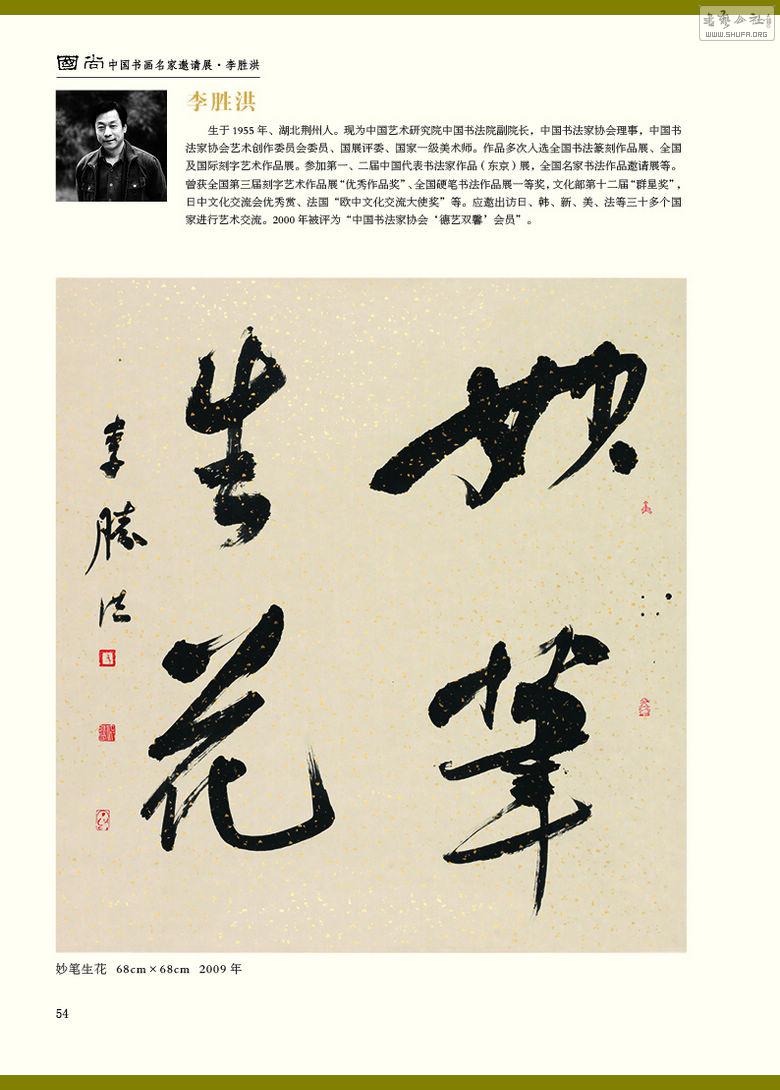 书艺公社
WWW.SHUFA.ORG
國尚 中国书画名家邀请展·李胜洪
李胜洪
生于 1955 年、湖北荆州人。现为中国艺术研究院中国书法院副院长,中国书法家协会理事,中国书
法家协会艺术创作委员会委员、国展评委、国家一级美术师。作品多次入选全国书法篆刻作品展、全国
及国际刻字艺术作品展。参加第一、二届中国代表书法家作品(东京)展,全国名家书法作品邀请展等。
曾获全国第三届刻字艺术作品展“优秀作品奖”、全国硬笔书法作品展一等奖,文化部第十二届“群星奖”,
日中文化交流会优秀赏、法国“欧中文化交流大使奖”等。应邀出访日、韩、新、美、法等三十多个国
家进行艺术交流。2000 年被评为“中国书法家协会‘德艺双馨’会员”。
妙筆
生花
李勝洪
妙笔生花 68cm×68cm 2009 年
54